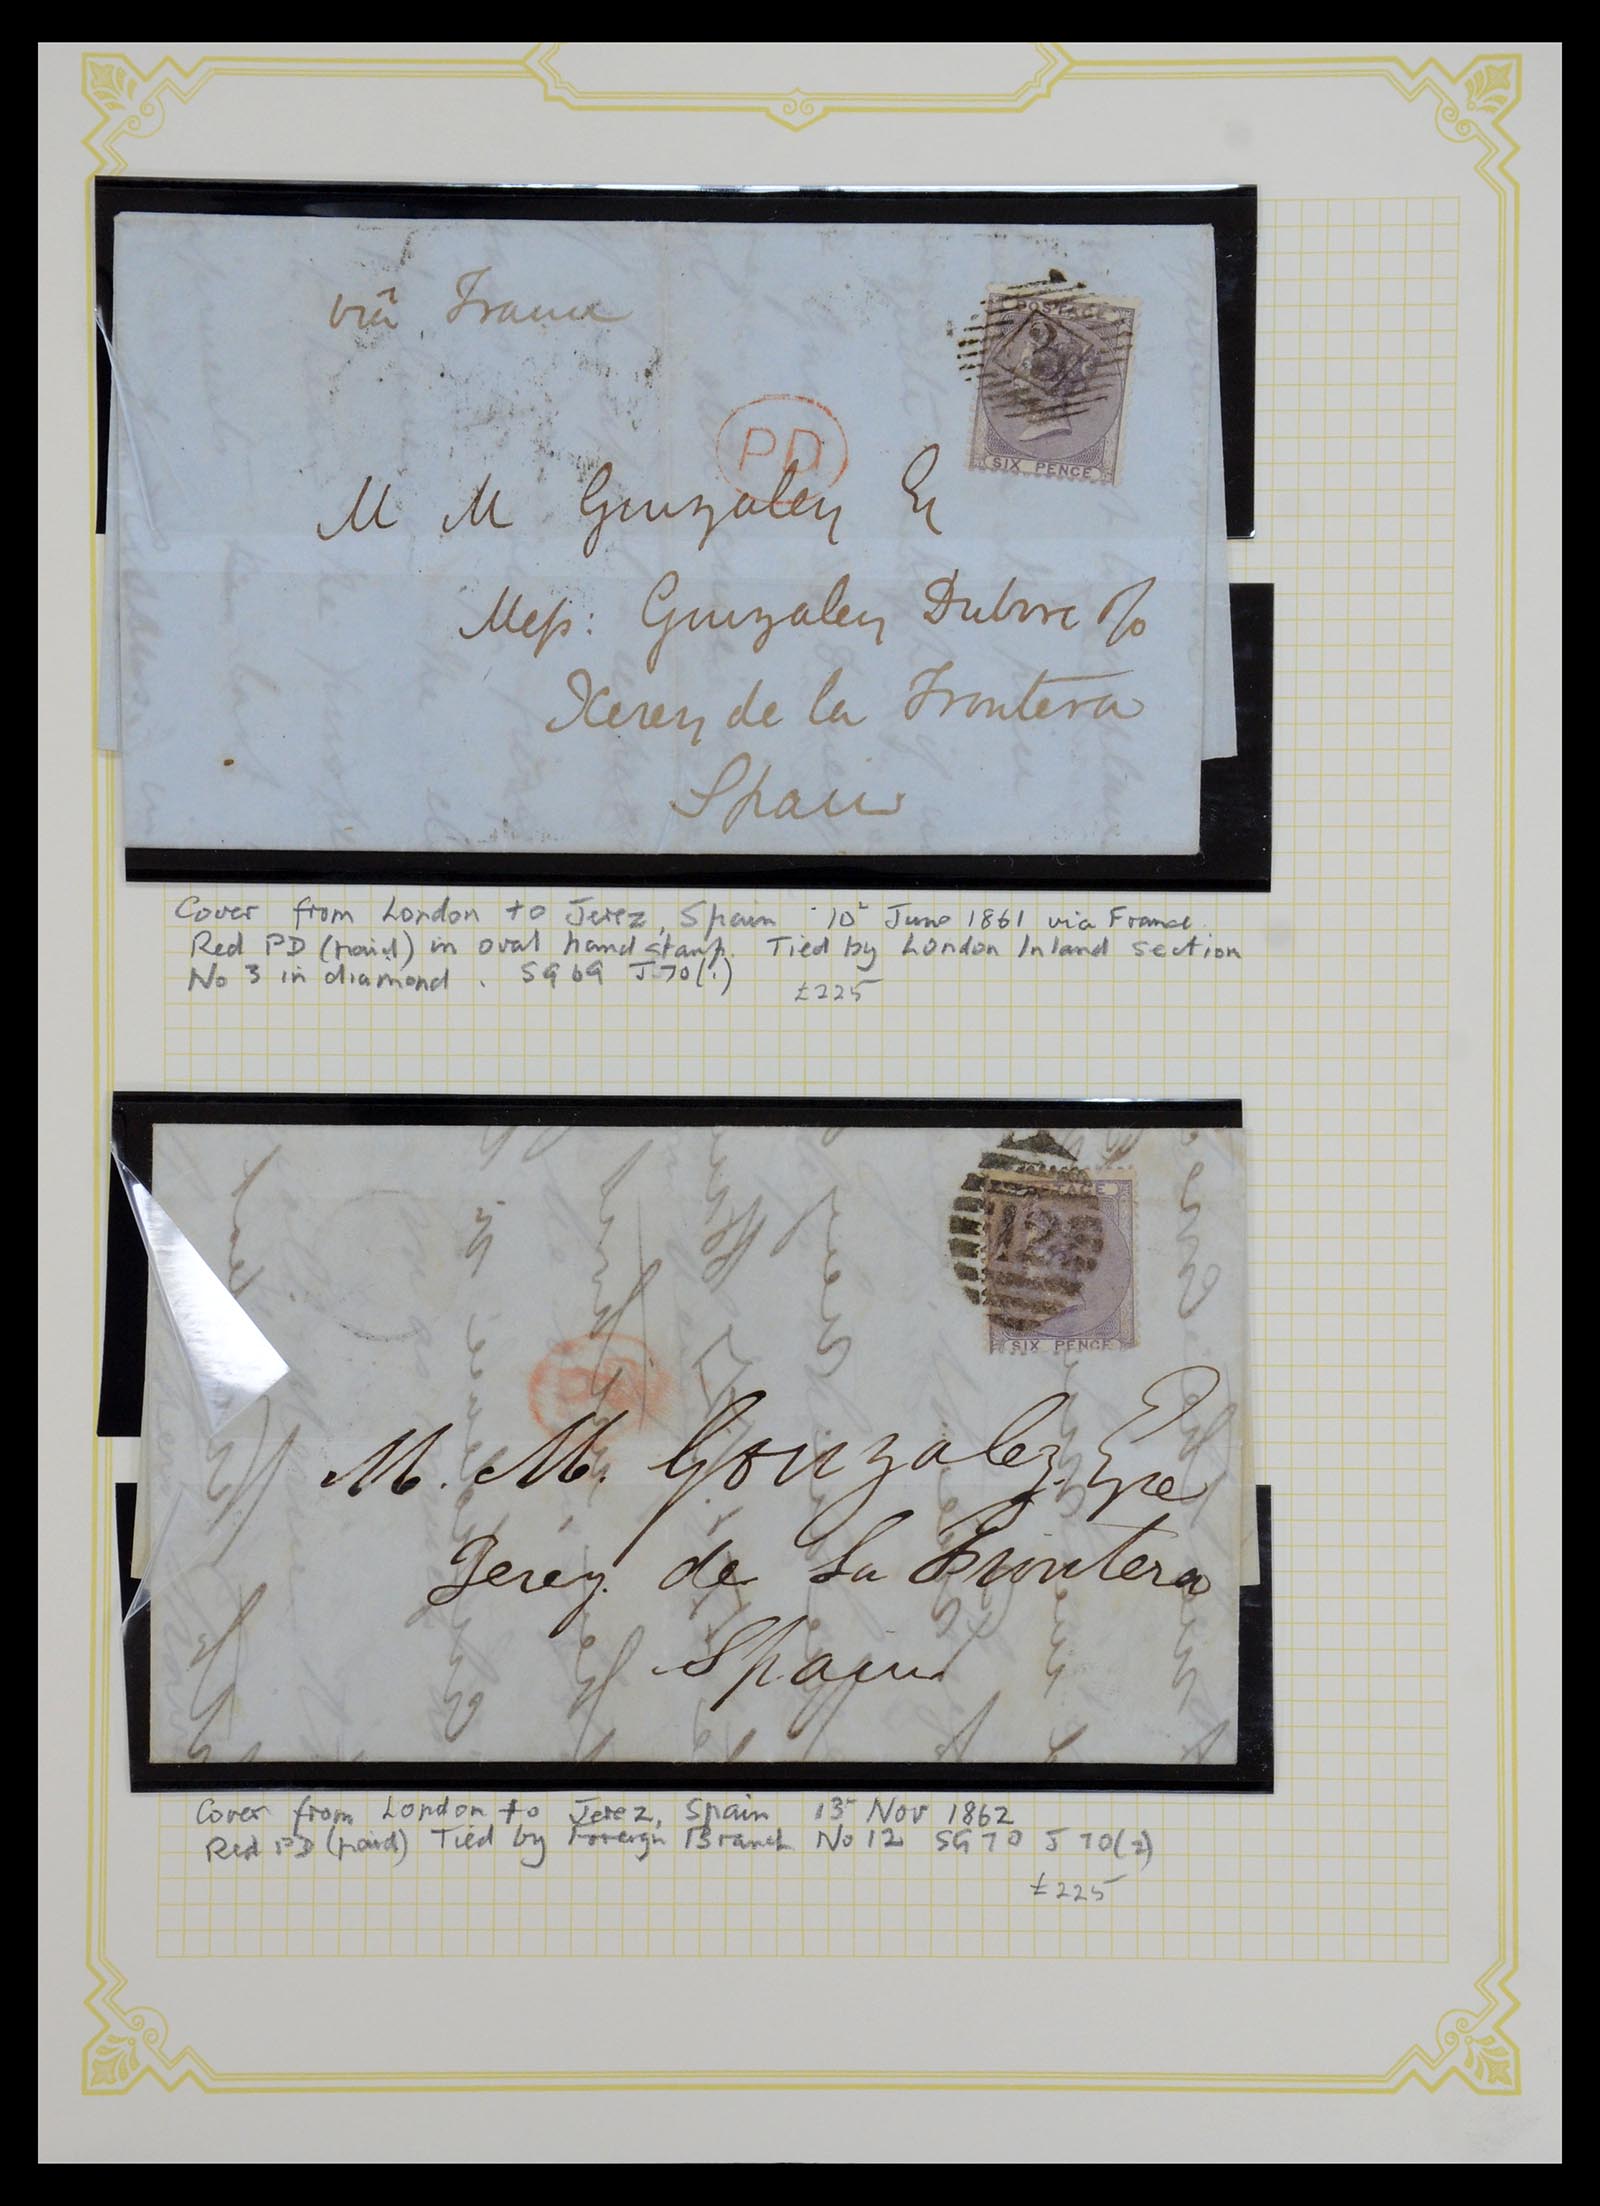 viâ France
POSTAGE
3
SIX PENCE
PD
M M Gonzalez Er
Mess: Gonzalez Dubosc &/Co
Xerez de la Frontera
Spain
Cover from London to Jerez, Spain 10 June 1861 via France.
Red PD (paid) in oval hand stamp. Tied by London Inland section
No 3 in diamond. SG 69 J 70(1)
£225
TAGE
12
SIX PENCE
PD
M. M. Gonzalez Eqre
Jerez de La Frontera
Spain
Cover from London to Jerez, Spain 13 Nov 1862
Red PD (paid) Tied by Foreign Branch No 12 SG 70 J 70(2)
£225